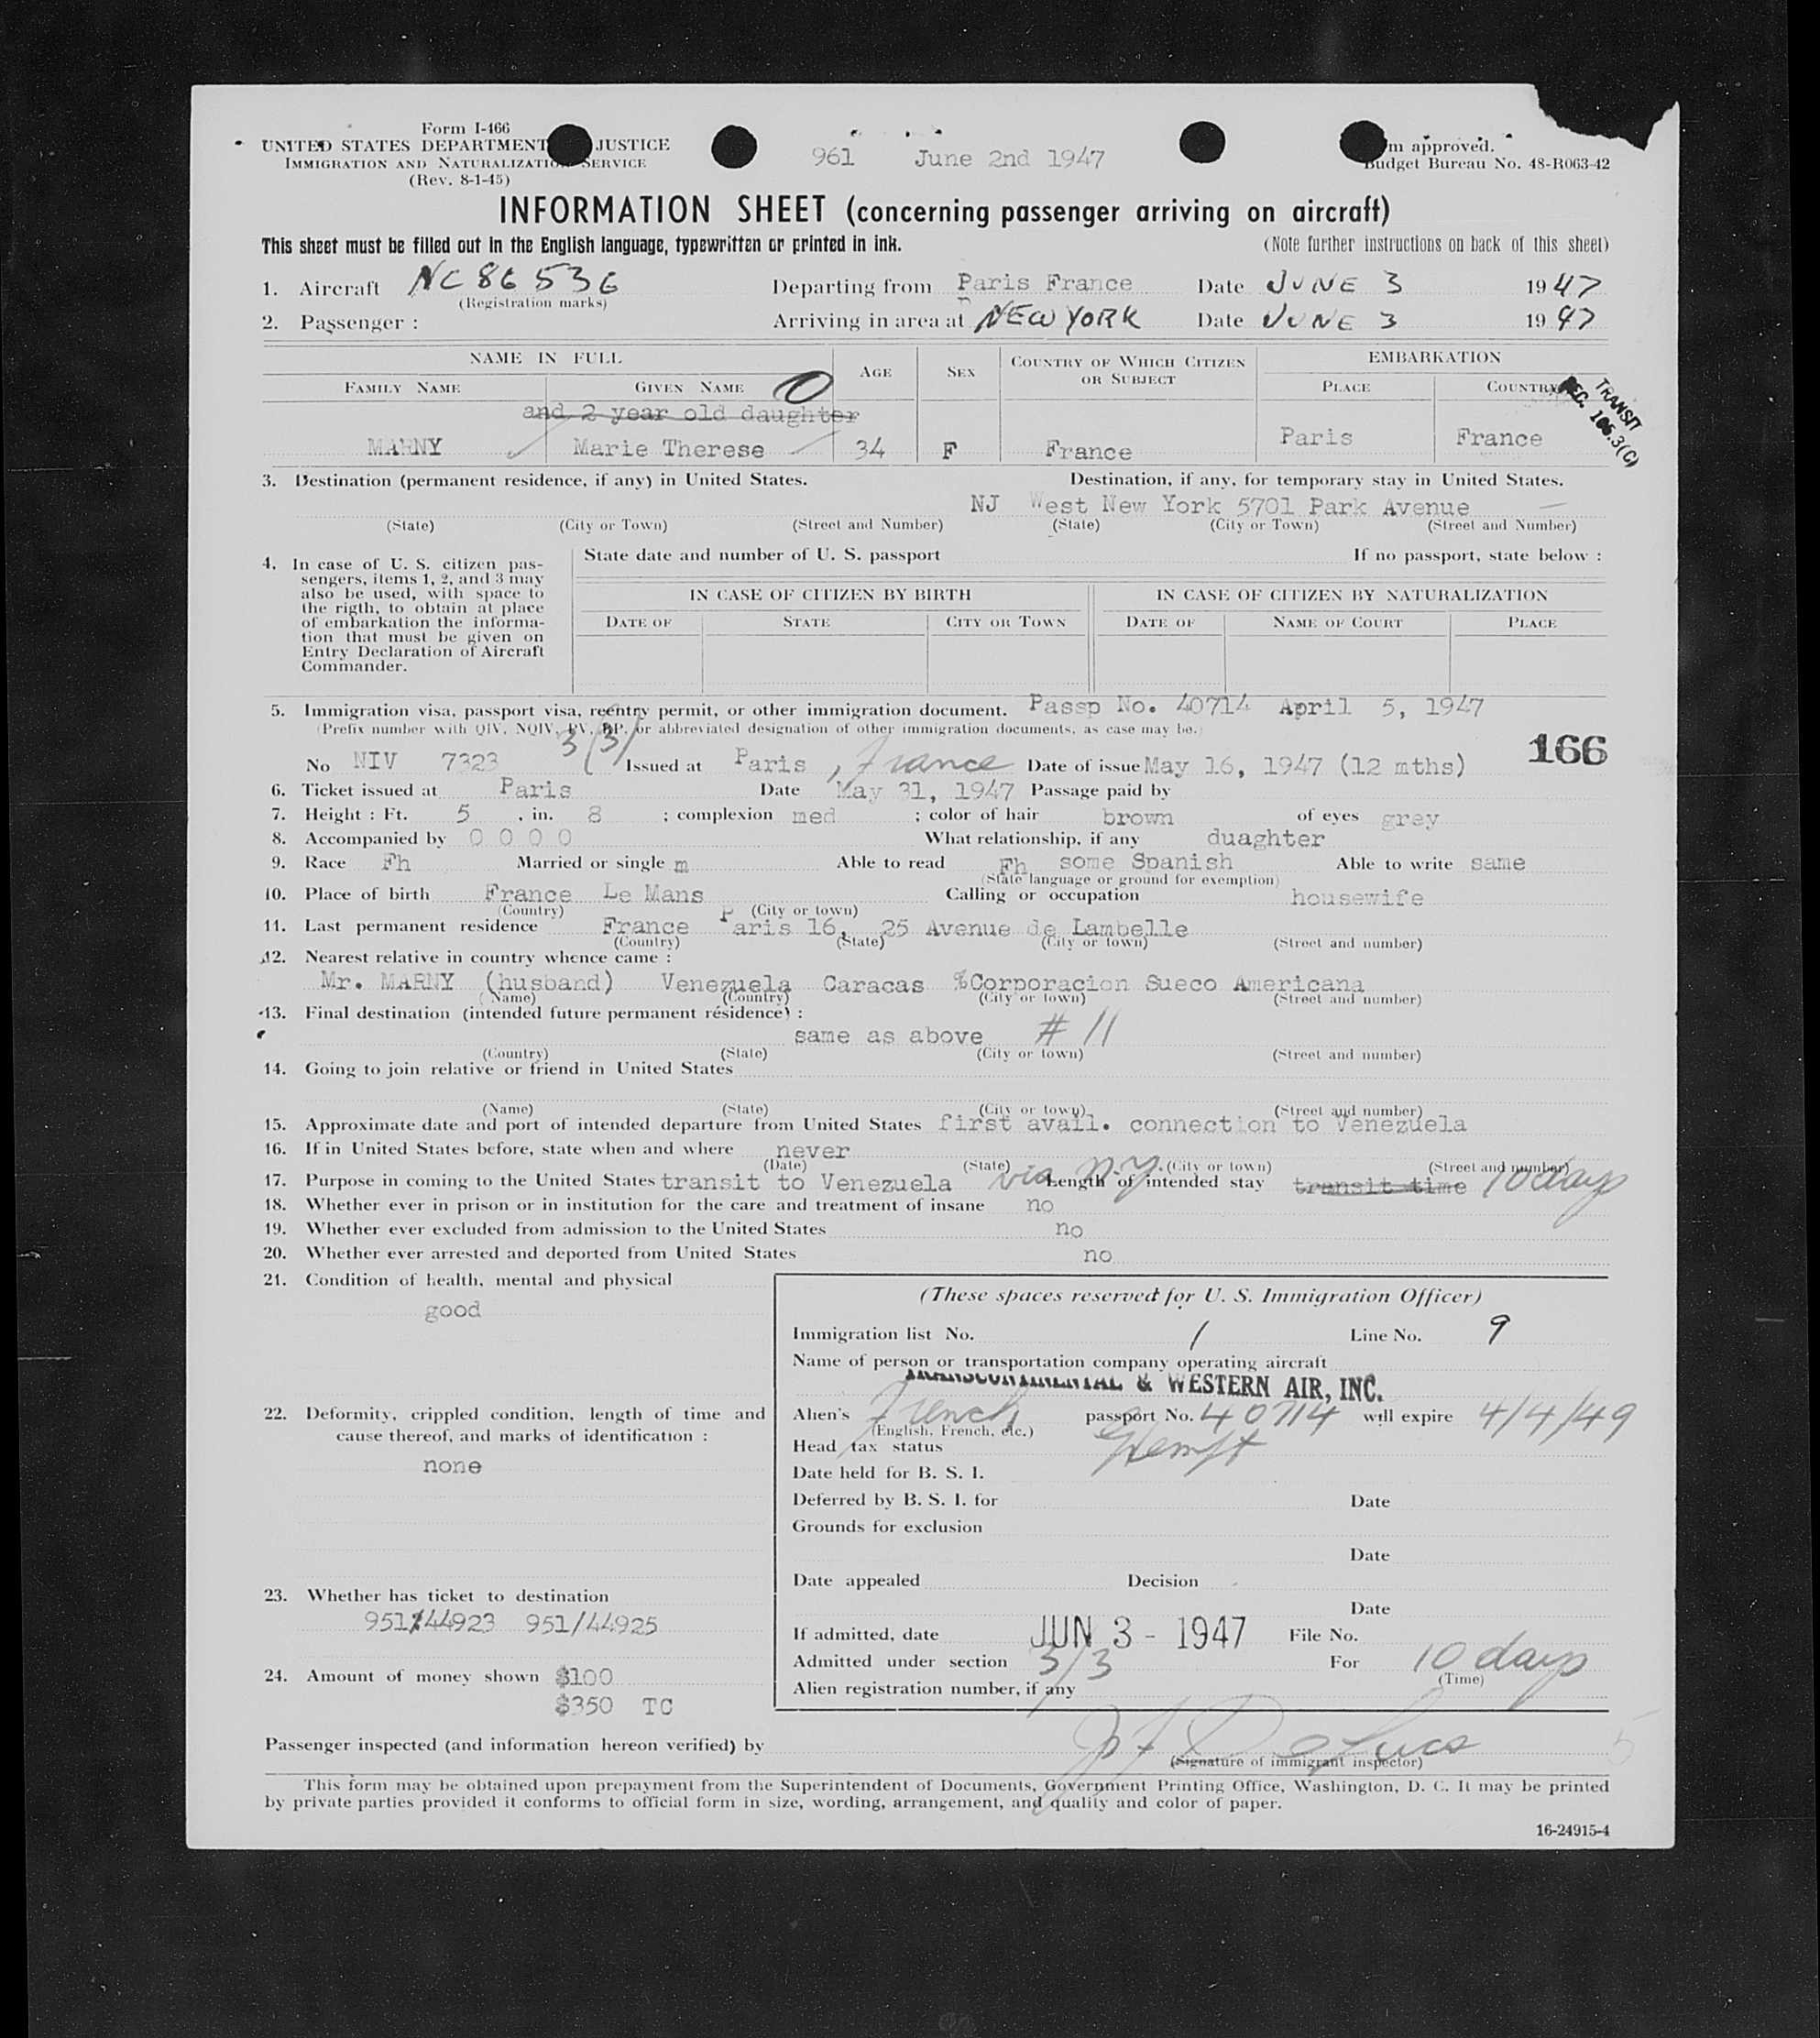 Form I-466
UNITED STATES DEPARTMENT JUSTICE
IMMIGRATION AND NATURALIZATION SERVICE
(Rev. 8-1-45)
961 June 2nd 1947
m approved.
Budget Bureau No. 48-R063-42
INFORMATION SHEET (concerning passenger arriving on aircraft)
This sheet must be filled out in the English language, typewritten or printed in ink. (Note further instructions on back of this sheet)
1. Aircraft NC 86536 Departing from Paris France Date JUNE 3 1947
(Registration marks)
2. Passenger : Arriving in area at NEW YORK Date JUNE 3 1947
NAME IN FULL AGE SEX COUNTRY OF WHICH CITIZEN OR SUBJECT EMBARKATION
FAMILY NAME GIVEN NAME O PLACE COUNTRY
TRANSIT
REC. 106.3(C)
and 2 year old daughter
MARNY Marie Therese 34 F France Paris France
3. Destination (permanent residence, if any) in United States. Destination, if any, for temporary stay in United States.
NJ West New York 5701 Park Avenue
(State) (City or Town) (Street and Number) (State) (City or Town) (Street and Number)
4. In case of U. S. citizen pas-
sengers, items 1, 2, and 3 may
also be used, with space to
the rigth, to obtain at place
of embarkation the informa-
tion that must be given on
Entry Declaration of Aircraft
Commander.
State date and number of U. S. passport If no passport, state below :
IN CASE OF CITIZEN BY BIRTH IN CASE OF CITIZEN BY NATURALIZATION
DATE OF STATE CITY OR TOWN DATE OF NAME OF COURT PLACE
5. Immigration visa, passport visa, reentry permit, or other immigration document. Passp No. 40714 April 5, 1947
(Prefix number with QIV, NQIV, PV, RP, or abbreviated designation of other immigration documents, as case may be.)
3(3)
166
No NIV 7323 Issued at Paris, France Date of issue May 16, 1947 (12 mths)
6. Ticket issued at Paris Date May 31, 1947 Passage paid by
7. Height : Ft. 5 , in. 8 ; complexion med ; color of hair brown of eyes grey
8. Accompanied by 0 0 0 0 What relationship, if any duaghter
9. Race Fh Married or single m Able to read Fh some Spanish Able to write same
(State language or ground for exemption)
10. Place of birth France Le Mans Calling or occupation housewife
(Country) (City or town)
11. Last permanent residence France Paris 16, 25 Avenue de Lambelle
(Country) (State) (City or town) (Street and number)
12. Nearest relative in country whence came :
Mr. MARNY (husband) Venezuela Caracas %Corporacion Sueco Americana
(Name) (Country) (City or town) (Street and number)
13. Final destination (intended future permanent résidence) :
same as above # 11
(Country) (State) (City or town) (Street and number)
14. Going to join relative or friend in United States
(Name) (State) (City or town) (Street and number)
15. Approximate date and port of intended departure from United States first avail. connection to Venezuela
16. If in United States before, state when and where never
(Date) (State) (City or town) (Street and number)
17. Purpose in coming to the United States transit to Venezuela via N.Y. Length of intended stay transit time 10 days
18. Whether ever in prison or in institution for the care and treatment of insane no
19. Whether ever excluded from admission to the United States no
20. Whether ever arrested and deported from United States no
21. Condition of health, mental and physical
good
22. Deformity, crippled condition, length of time and
cause thereof, and marks of identification :
none
23. Whether has ticket to destination
951/44923 951/44925
24. Amount of money shown $100
$350 TC
(These spaces reserved for U. S. Immigration Officer)
Immigration list No. 1 Line No. 9
Name of person or transportation company operating aircraft
TRANSCONTINENTAL & WESTERN AIR, INC.
Alien's French passport No. 40714 will expire 4/4/49
(English, French, etc.)
Head tax status Exempt
Date held for B. S. I.
Deferred by B. S. I. for Date
Grounds for exclusion
Date
Date appealed Decision
Date
If admitted, date JUN 3 - 1947 File No.
Admitted under section 3/3 For 10 days
(Time)
Alien registration number, if any
Passenger inspected (and information hereon verified) by
(Signature of immigrant inspector)
This form may be obtained upon prepayment from the Superintendent of Documents, Government Printing Office, Washington, D. C. It may be printed
by private parties provided it conforms to official form in size, wording, arrangement, and quality and color of paper.
16-24915-4